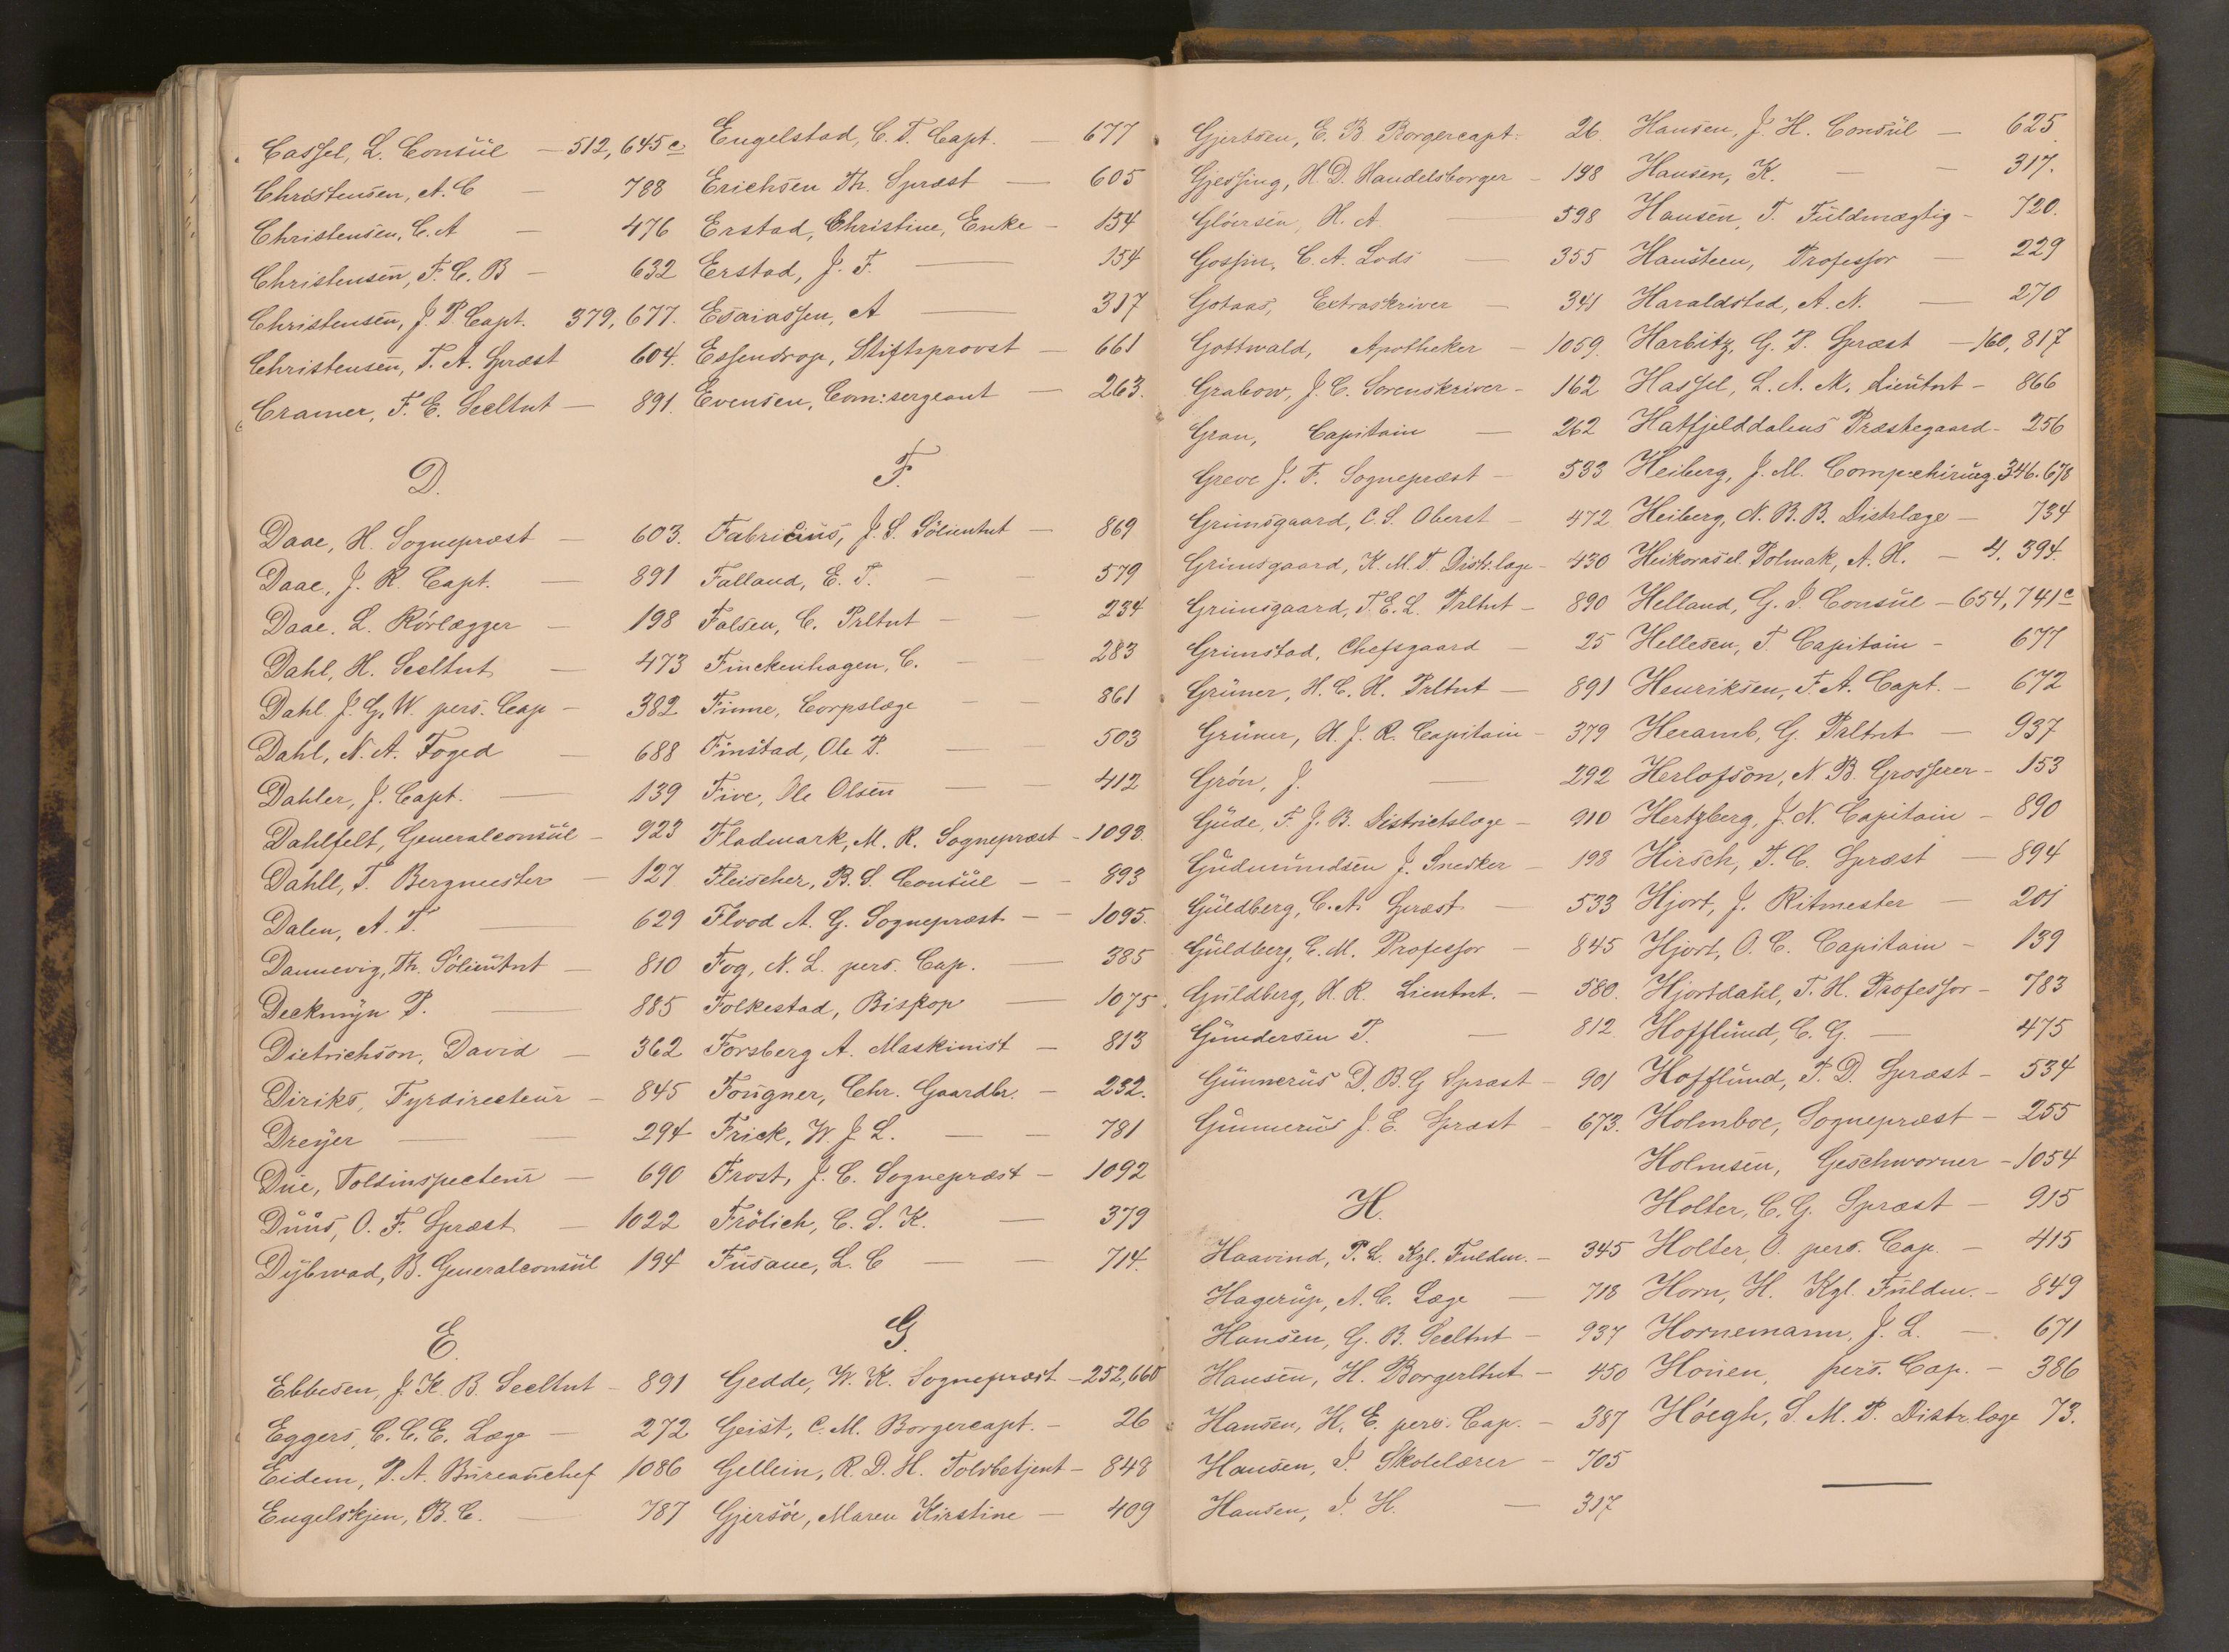 Cassel, L. Consül — 512, 645 c
Christensen, A. C — 788
Christensen, C. A — 476
Christensen, F. C. B — 632
Christensen, J. P. Capt. 379, 677.
Christensen, T. A. Spræst 604.
Cramer, F. E. Secltnt — 891.
D.
Daae, H. Sognepræst — 603.
Daae, J. R. Capt. — 891
Daae, L. Rörlægger — 198
Dahl, H. Secltnt — 473
Dahl J. G. W. pers. Cap — 382
Dahl, N. A. Foged — 688
Dahler, J. Capt. — 139
Dahlfelt, Generalconsül — 923
Dahll, T. Bergmester — 127
Dalen, A. T. — 629
Dannevig, Th. Sölieütnt — 810
Deckmÿn P. — 885
Dietrichson, David — 362
Diriks, Fyrdirecteür — 845
Dreÿer — 294
Düe, Toldinspecteur — 690
Düüs, O. F. Spræst — 1022
Dÿbwad, B. Generalconsül 194
E.
Ebbesen, J. K. B. Secltnt — 891
Eggers, C. C. E. Læge — 272
Eidem, P. A. Büreaüchef 1086
Engelskjen, B. C. — 787
Engelstad, C. T. Capt. — 677
Erichsen Th. Spræst — 605
Erstad, Christine, Enke — 154
Erstad, J. F. — 154
Esaiassen, A — 317
Essendrop, Stiftsprovst — 661
Evensen, Com: sergeant — 263.
F.
Fabricius, J. S. Sölieutnt — 869
Falland, E. T. — 579
Falsen, C. Prltnt — 234
Finckenhagen, C. — 283
Finne, Corpslæge — 861
Finstad, Ole P. — 503
Five, Ole Olsen — 412
Fladmark, M. R. Sognepræst — 1093.
Fleischer, B. S. Consül — 893
Flood A. G. Sognepræst — 1095.
Fog, N. L. pers. Cap. — 385
Folkestad, Biskop — 1075
Forsberg A. Maskinist — 813
Foügner, Chr. Gaardbr. — 232.
Frick, W. J. L. — 781
Frost, J. C. Sognepræst — 1092
Frölich, C. S. K. — 379
Füsane, L. C — 714.
G.
Gedde, W. K. Sognepræst — 252, 660
Geist, C. M. Borgercapt. — 26
Gellein, R. D. H. Toldbetjent — 848
Gjersöe, Maren Kirstine — 409
Gjertsen, E. B Borgercapt. 26
Gjessing, H. D. Handelsborger — 198
Glöersen, H. A — 598
Gossin, C. A. Lods — 355
Gotaas, Extraskriver — 341
Gottwald, Apotheker — 1059.
Grabow, J. C. Sorenskriver — 162
Gran, Capitain — 262
Greve J. F. Sognepræst — 533
Grimsgaard, C. S. Oberst — 472
Grimsgaard, K. M. T. Distr. læge — 430
Grimsgaard, T. E. L. Prltnt — 890
Grimstad, Chefsgaard — 25
Grüner, H. C. H. Prltnt — 891
Grüner, H. J. R. Capitain — 379
Grön, J. — 292
Güde, F. J. B. Districtslæge — 910
Güdmündsen J. Snedker — 198
Güldberg, C. A. Spræst — 533
Güldberg, C. M. Professor — 845
Guldberg, H. R. Lieutnt. — 580.
Gündersen P. — 812
Günnerüs D. B. G Spræst — 901
Günnerüs J. E. Spræst — 673.
H.
Haavind, P. L. Kgl. Fuldm. — 345
Hagerüp, A. C. Læge — 718
Hansen, G. B. Secltnt — 937
Hansen, H. Borgerltnt — 450
Hansen, H. E. pers. Cap. — 387
Hansen, I. Skolelærer — 705
Hansen, I. H. — 317
Hansen, J. H. Consül — 625
Hansen, K. — 317.
Hansen, T. Füldmægtig — 720.
Hansteen, Professor — 229
Haraldstad, A. N. — 270
Harbitz, G. P. Spræst — 160, 817
Hassel, L. A. M. Lieütnt — 866
Hatfjelddalens Præstegaard — 256
Heiberg, J. M. Compchirürg. 346. 678
Heiberg, N. B. B. Distrlæge — 734
Heikoras el. Polmak, A. H. — 4. 394.
Helland, G. I. Consül — 654, 741 c
Hellesen, T. Capitain — 677
Henriksen, F. A. Capt. — 672
Heramb, G. Prltnt — 937
Herlofson, N B. Grosserer — 153
Hertzberg, J. N. Capitain — 890
Hirsch, T. C. Spræst — 894
Hjort, J. Ritmester — 201
Hjort, O. C. Capitain — 139
Hjortdahl, T. H. Professor — 783
Hofflünd, C. G. — 475
Hofflünd, P. D. Spræst — 534
Holmboe, Sognepræst — 255
Holmsen, Geschworner — 1054
Holter, C. G. Spræst — 915
Holter, O. pers. Cap. — 415
Horn, H. Kgl. Füldm. — 849
Hornemann, J. L. — 671
Hoüen, pers. Cap. — 386
Höegh, S. M. P. Distr. læge 73.